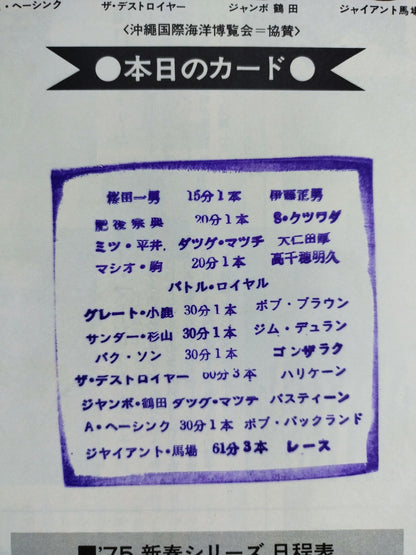 ・ヘーシング ザ・デストロイヤー ジャンボ鶴田 ジャイアント馬場
〈沖縄国際海洋博覧会=協賛〉
●本日のカード●
桜田一男 15分1本 伊藤正男
肥後宗典 20分1本 S・クツワダ
ミツ・平井 タツグ・マツチ 大仁田厚
マシオ・駒 20分1本 高千穂明久
バトル・ロイヤル
グレート・小鹿 30分1本 ボブ・ブラウン
サンダー・杉山 30分1本 ジム・デュラン
パク・ソン 30分1本 ゴンザラク
ザ・デストロイヤー 60分3本 ハリケーン
ジャンボ・鶴田 タツグ・マツチ バスティーン
A・ヘーシンク 30分1本 ボブ・バックランド
ジャイアント・馬場 61分3本 レース
■'75 新春シリーズ 日程表